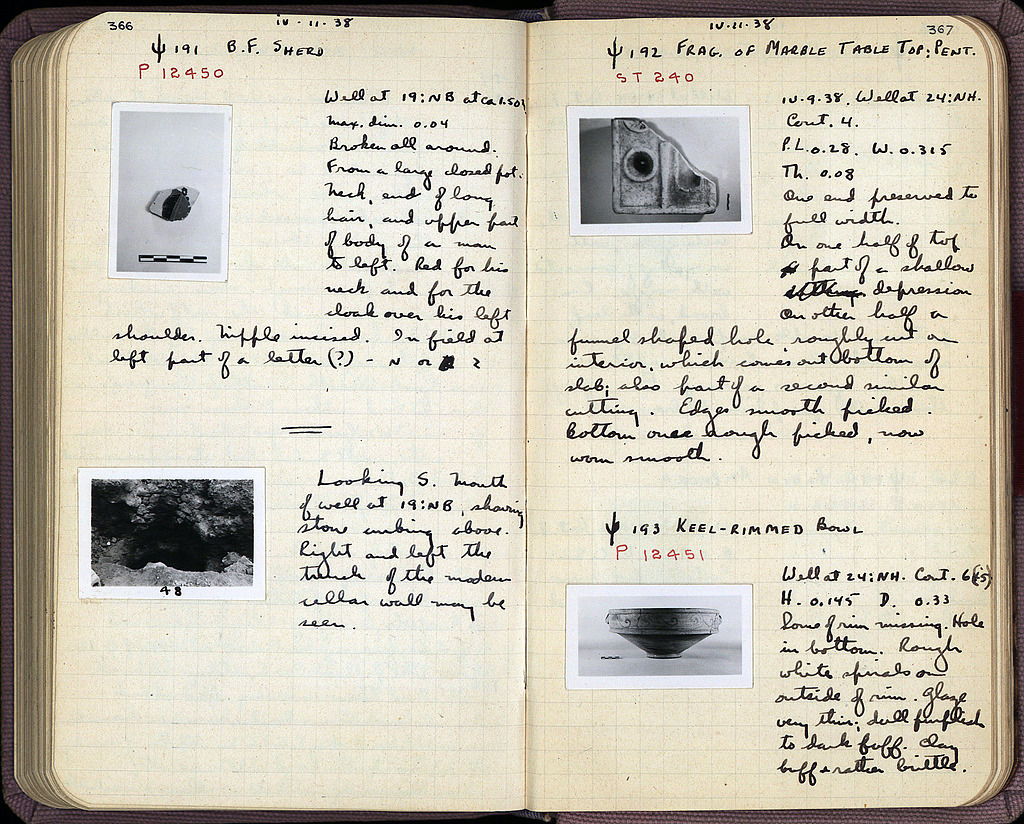 366
IV-11-38
Ψ 191 B.F. SHERD
P 12450
Well at 19:NB at ca 1.50
Max. dim. 0.04
Broken all around.
From a large closed pot.
Neck, end of long
hair, and upper part
of body of a man
to left. Red for his
neck and for the
cloak over his left
shoulder. Nipple incised. In field at
left part of a letter (?) - N or
Looking S. Mouth
of well at 19:NB, showing
stone curbing above.
Right and left the
trench of the modern
cellar wall may be
seen.
48
367
IV-11-38
Ψ 192 FRAG. OF MARBLE TABLE TOP: PENT.
ST 240
IV-9-38. Well at 24:NH.
Cont. 4.
P.L. 0.28. W. 0.315
Th. 0.08
One end preserved to
full width.
On one half of top
part of a shallow
depression
On other half a
funnel shaped hole roughly cut on
interior, which comes out bottom of
slab; also part of a second similar
cutting. Edges smooth picked.
Bottom once rough picked, now
worn smooth.
Ψ 193 KEEL-RIMMED BOWL
P 12451
Well at 24:NH. Cont. 6 (5)
H. 0.145 D. 0.33
Some of rim missing. Hole
in bottom. Rough
white spirals on
outside of rim. Glaze
very thin; dull purplish
to dark buff. Clay
buff + rather brittle.